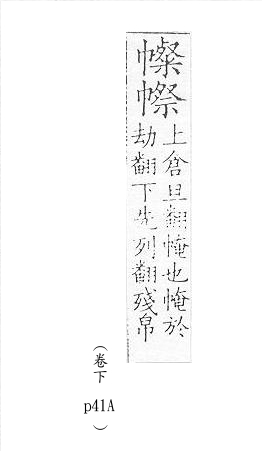 ⿰巾粲㡜
上倉旦翻㡋也㡋於
劫翻下先列翻殘帛
（卷下
p41A
）